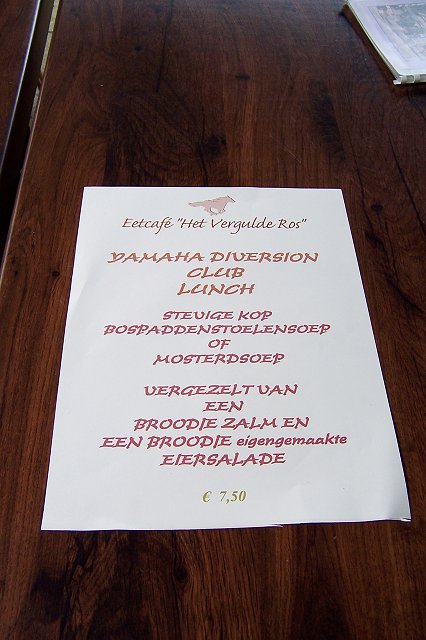 Eetcafé "Het Vergulde Ros"
YAMAHA DIVERSION
CLUB
LUNCH
STEVIGE KOP
BOSPADDENSTOELENSOEP
OF
MOSTERDSOEP
VERGEZELT VAN
EEN
BROODJE ZALM EN
EEN BROODJE eigengemaakte
EIERSALADE
€ 7,50